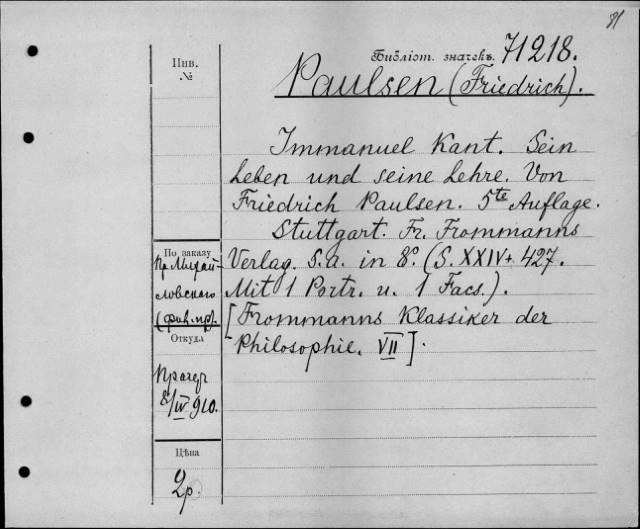 81
Библіот. значекъ 71218.
Инв.
№
Paulsen (Friedrich).
Immanuel Kant. Sein
Leben und seine Lehre. Von
Friedrich Paulsen. 5te Auflage.
Stuttgart. Fr. Frommanns
Verlag. s.a. in 8°. (S. XXIV + 427.
Mit 1 Portr. u. 1 Facs.).
[Frommanns Klassiker der
Philosophie. VII].
По заказу
Пр. Михай-
ловскаго
Откуда
8/IV 910.
Цѣна
2р.